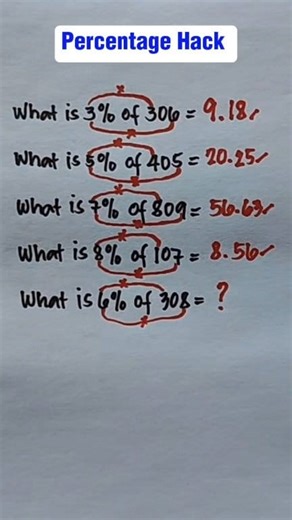 Percentage Hack
What is 3% of 306 = 9.18✓
What is 5% of 405 = 20.25✓
What is 7% of 809 = 56.63✓
What is 8% of 107 = 8.56✓
What is 6% of 308 = ?